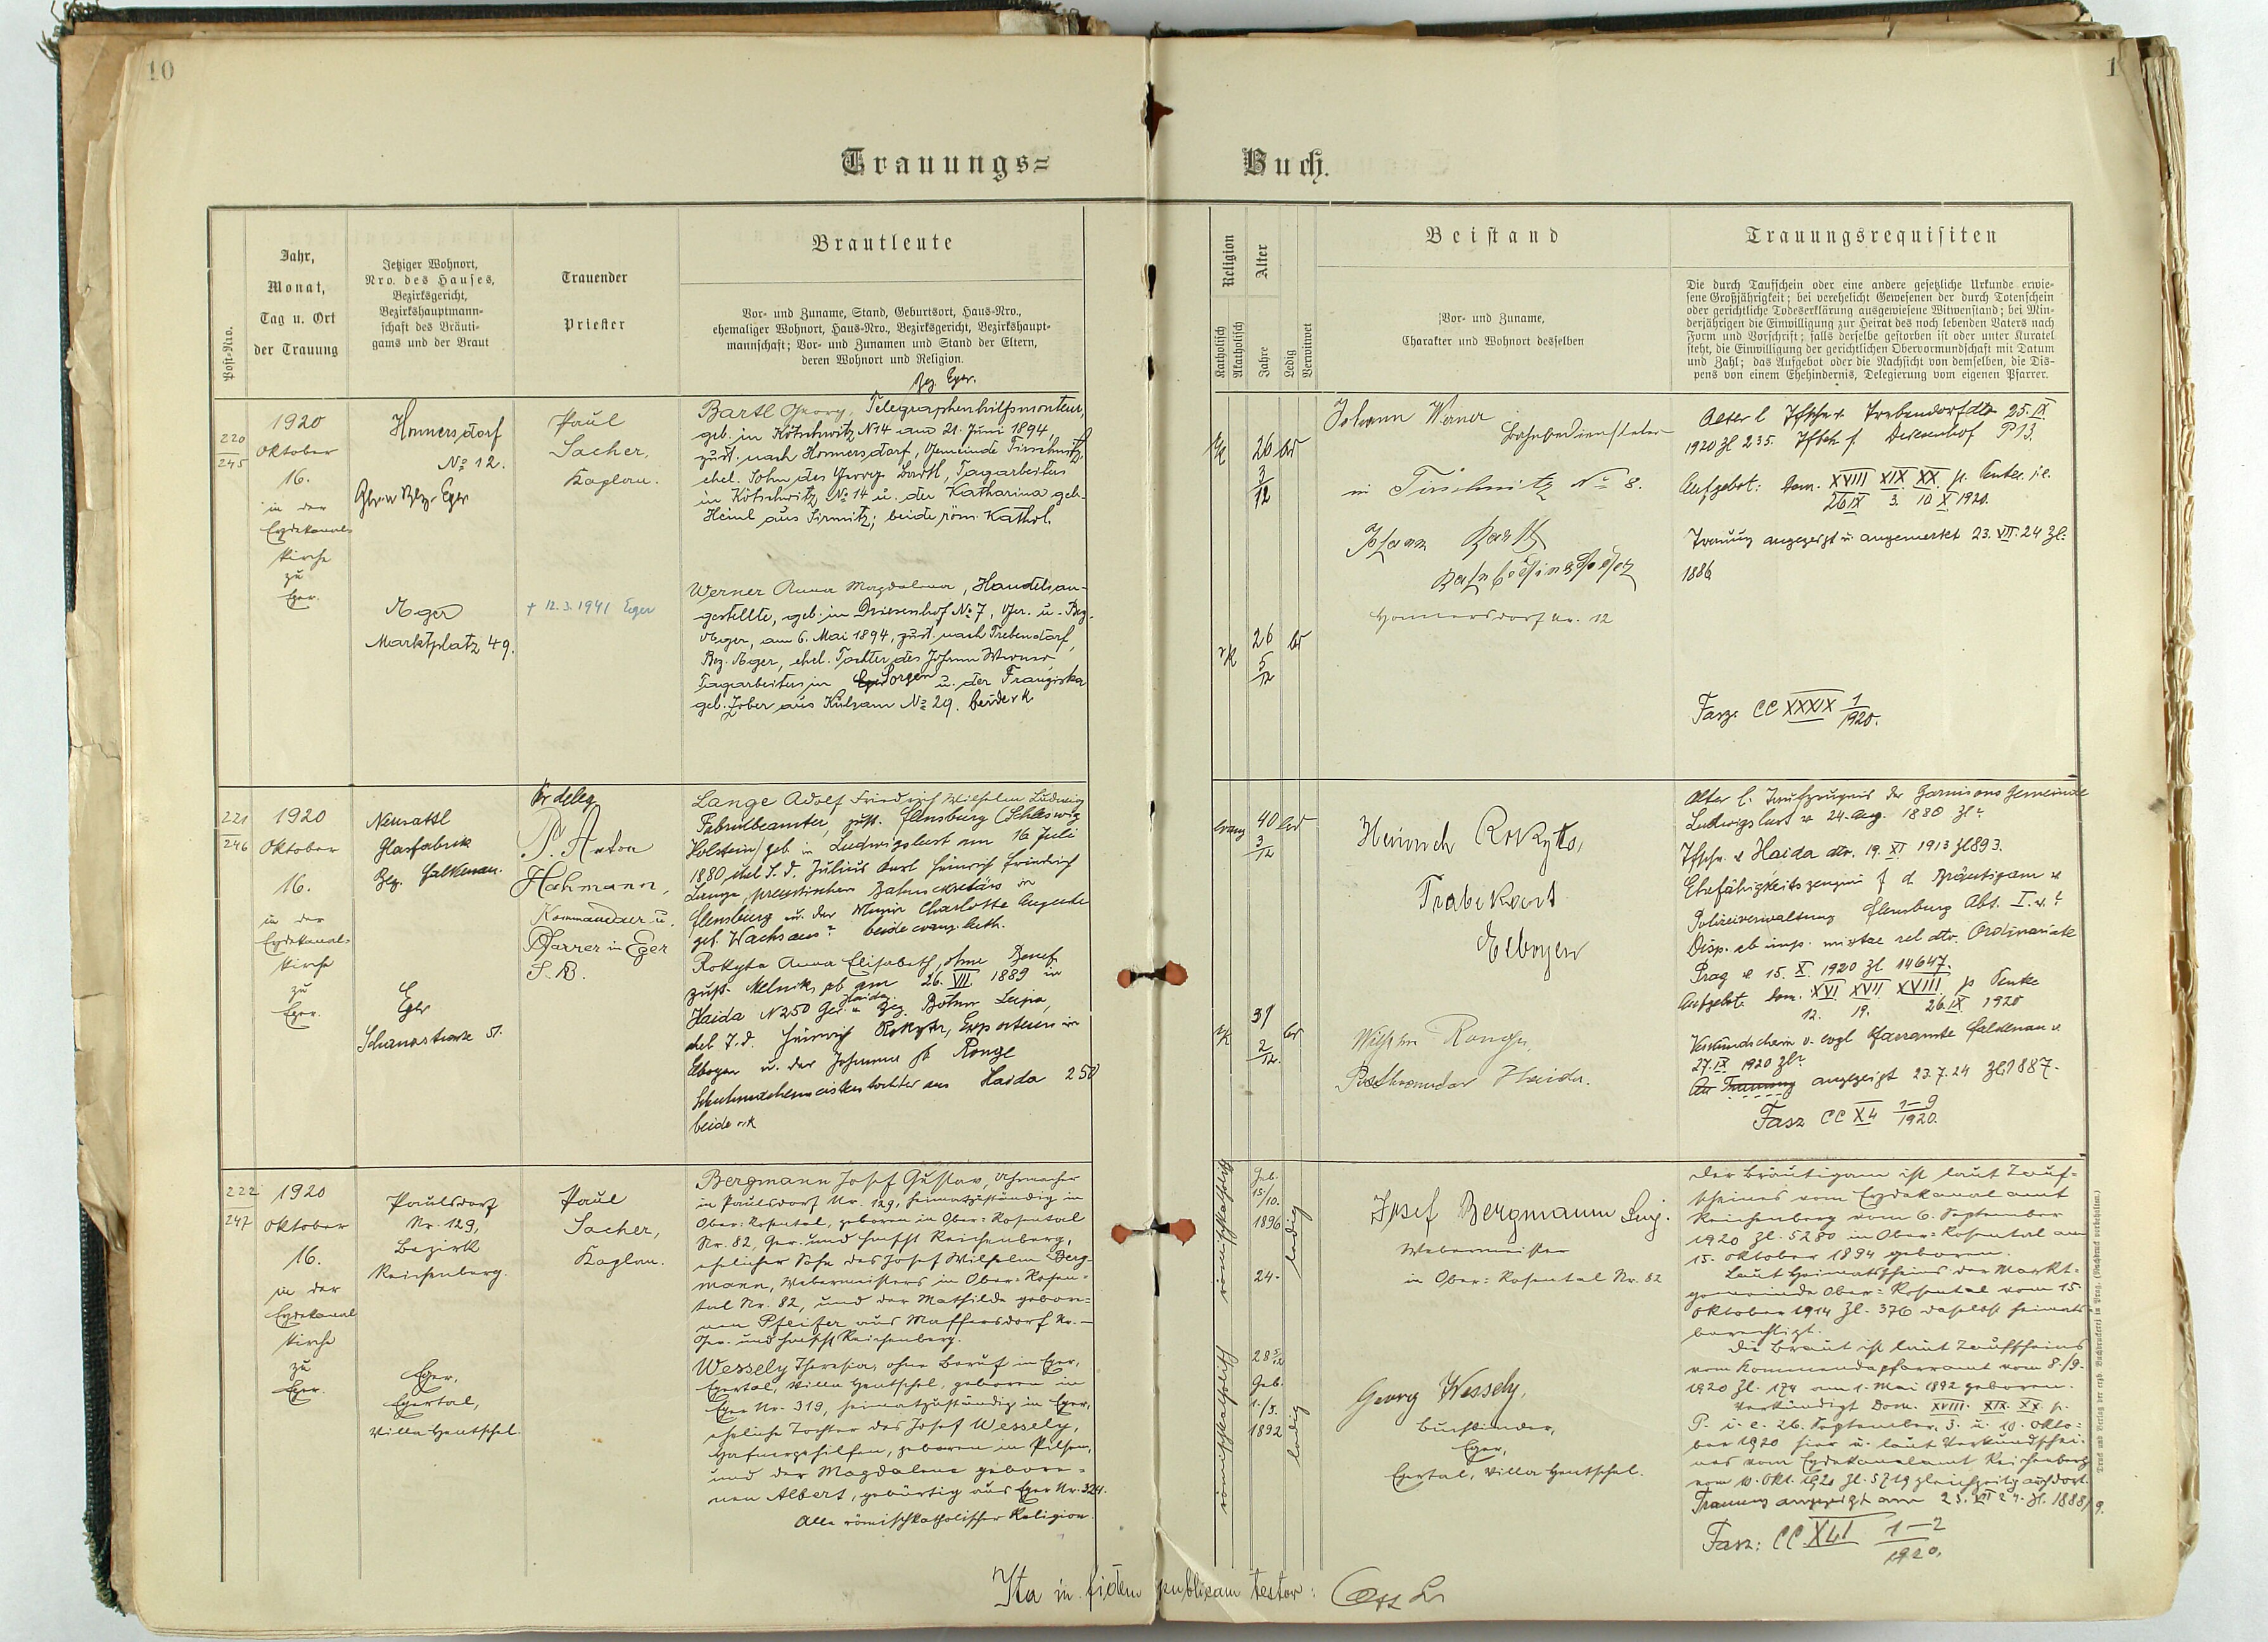 10
1
Trauungs=
Buch.
Post=Nro.
Jahr,
Monat,
Tag u. Ort
der Trauung
Jetziger Wohnort,
Nro. des Hauses,
Bezirksgericht,
Bezirkshauptmann=
schaft des Bräuti=
gams und der Braut
Trauender
Priester
Brautleute
Vor= und Zuname, Stand, Geburtsort, Haus=Nro.,
ehemaliger Wohnort, Haus=Nro., Bezirksgericht, Bezirkshaupt=
mannschaft; Vor= und Zunamen und Stand der Eltern,
deren Wohnort und Religion.
Religion
Katholisch
Akatholisch
Alter
Jahre
Ledig
Verwitwet
Beistand
Vor= und Zuname,
Charakter und Wohnort desselben
Trauungsrequisiten
Die durch Taufschein oder eine andere gesetzliche Urkunde erwie=
sene Großjährigkeit; bei verehelicht Gewesenen der durch Totenschein
oder gerichtliche Todeserklärung ausgewiesene Witwenstand; bei Min=
derjährigen die Einwilligung zur Heirat des noch lebenden Vaters nach
Form und Vorschrift; falls derselbe gestorben ist oder unter Kuratel
steht, die Einwilligung der gerichtlichen Obervormundschaft mit Datum
und Zahl; das Aufgebot oder die Nachsicht von demselben, die Dis=
pens von einem Ehehindernis, Delegierung vom eigenen Pfarrer.
220
245
1920
Oktober
16.
in der
Erzdekanal=
kirche
zu
Eger.
Honnersdorf
No 12.
Bez. Eger
Paul
Sacher,
Kaplan.
Bez. Eger.
Bartl Georg, Telegraphenhilfsmonteur,
geb. in Kötschwitz N14 am 21. Juni 1894,
zust. nach Honnersdorf, Gemeinde Tirschnitz,
ehel. Sohn des Georg Bartl, Tagarbeiters
in Kötschwitz No 14 u. der Katharina geb.
Heinl aus Sirmitz; beide röm. Kathol.
Eger
Marktplatz 49.
+ 12.3.1941 Eger
Werner Anna Magdalena, Handelsan=
gestellte, geb. in Driesenhof No 7, Ger. u. Bez.
Eger, am 6. Mai 1894, zust. nach Trebendorf,
Bez. Eger, ehel. Tochter des Johann Werner
Tagarbeiters in Sorgen u. der Franziska
geb. Zober aus Kulsam No 29. beide rk
rk
26
3
12
led
rk
26
5
12
led
Johann Werner
Bahnbediensteter
in Tirschnitz No 8.
Johann Bartl
Bahnbediensteter
Honnersdorf Nr. 12
Alter l. Tfschne Trebendorf dto 25. IX
1920 Zl 235. Tfsch f. Driesenhof P 13.
Aufgebot: Dom. XVIII XIX XX. p. Pentec. i.e.
26 IX 3. 10 X 1920.
Trauung angezeigt u. angemerkt 23. VII. 24 Zl.
1886
Fasz. CC XXXIX 1
1920.
221
246
1920
Oktober
16.
in der
Erzdekanal=
kirche
zu
Eger.
Neusattl
Glasfabrik
Bez. Falkenau.
Eger
Schanzstrasse 5.
Er deleg
P. Anton
Hahmann,
Kommandeur u.
Pfarrer in Eger
S. B.
Lange Adolf Friedrich Wilhelm Ludwig
Fabriksbeamter, zust. Flensburg (Schleswig
Holstein) geb in Ludwigslust am 16 Juli
1880, ehel S. d. Julius Karl Heinrich Friedrich
Lange, preussischen Bahnsekretärs in
Flensburg u. der Minna Charlotte Auguste
geb. Wachsen? beide evang. luth.
Rokyta Anna Elisabeth, ohne Beruf
zust. Melnik, gb am 26. VII 1889 in
Haida N250 Ger. Haida u Bez. Böhm Leipa,
ehel. T. d. Heinrich Rokyta, Exporteurs in
Elbogen u. der Johanna gb Ronge
Schuhmachermeisterstochter aus Haida 250
beide rk
evang
40
3
12
led
rk
31
2
12.
led
Heinrich Rokyta,
Trabukant
Elbogen
Wilhelm Ronge,
Postbeamter Haida.
Alter l. Taufzeugnis der Garnisons Gemeinde
Ludwigslust v 24. Aug. 1880 Zl?
Tfschn. v Haida dto. 19. XI 1913 Zl 893.
Ehefähigkeitszeugnis f d Bräutigam v
Polizeiverwaltung Flensburg Abt. I. v. ?
Disp. ab imp. mixtae rel dto. Ordinariate
Prag v 15. X. 1920 Zl 14647.
Aufgebot. Dom. XVI XVII XVIII p Pentec
12. 19. 26. IX 1920
Verkündschein v. evgl Pfarramte Falkenau v.
27. IX 1920 Zl?
Trauung angezeigt 23.7.24 Zl 1887.
Fasz CC XL 1-9
1920.
222
247
1920
Oktober
16.
in der
Erzdekanal
kirche
zu
Eger.
Paulsdorf
Nr. 129,
Bezirk
Reichenberg.
Eger,
Egertal,
Villa Hentschel.
Paul
Sacher,
Kaplan.
Bergmann Josef Gustav, Uhrmacher
in Paulsdorf Nr. 129, heimatzuständig in
Ober=Rosental, geboren in Ober=Rosental
Nr. 82, Ger. und Hptsch Reichenberg,
ehelicher Sohn des Josef Wilhelm Berg=
mann, Webermeisters in Ober=Rosen=
tal Nr. 82, und der Mathilde gebor=
nen Pfeifer aus Maffersdorf Nr. —
Ger. und Hptsch Reichenberg.
Wessely Theresia, ohne Beruf in Eger,
Egertal, Villa Hentschel, geboren in
Eger Nr. 319, heimatzuständig in Eger,
eheliche Tochter des Josef Wessely,
Hafnergehilfen, geboren in Pilsen,
und der Magdalena gebore=
nen Albert, gebürtig aus Eger Nr. 324.
Alle römischkatholischer Religion.
römischkatholisch
Geb.
15/10.
1896
24.
ledig
römischkatholisch
28 5/12
Geb.
1./5.
1892
ledig
Josef Bergmann
Webermeister
in Ober=Rosental Nr. 82
Georg Wessely,
Buchbinder,
Eger,
Egertal, Villa Hentschel.
Der Bräutigam ist laut Tauf=
scheines vom Erzdekanalamt
Reichenberg vom 6. September
1920 Zl. 5280 in Ober=Rosental am
15. Oktober 1894 geboren.
Laut Heimatscheins der Markt=
gemeinde Ober=Rosental vom 15
Oktober 1914 Zl. 376 daselbst heimats=
berechtigt.
Die Braut ist laut Taufscheins
vom Kommendapfarramt vom 8./9.
1920 Zl. 174 am 1. Mai 1892 geboren.
Verkündigt Dom. XVIII. XIX. XX. p.
P. i. e. 26. September, 3. u. 10. Okto=
ber 1920 hier u. laut Verkündschei=
nes vom Erzdekanalamt Reichenberg
vom 10. Okt. 1920 Zl. 5719 gleichzeitig auch dort.
Trauung angezeigt am 23. VII 24. Zl. 1888/9.
Fasz: CC XLI 1—2
1920.
Druck und Verlag der erzb. Buchdruckerei in Prag. (Nachdruck vorbehalten.)
Ita in fidem publicam testor: